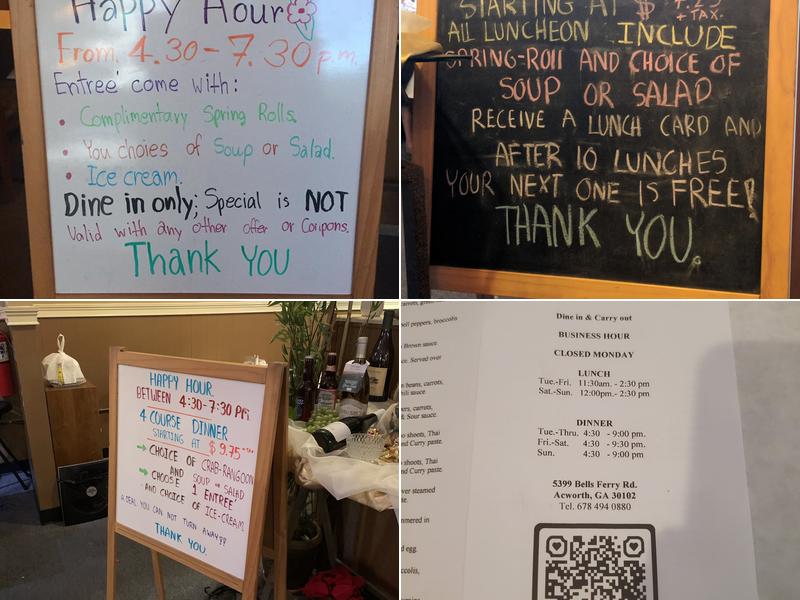 Happy Hour
From 4.30 - 7.30 p.m.
Entree' come with:
• Complimentary Spring Rolls.
• You choies of Soup or Salad.
• Ice cream.
Dine in only; Special is NOT
Valid with any other offer or Coupons.
Thank YOU
STARTING AT $
+ TAX
ALL LUNCHEON INCLUDE
SPRING-ROll AND CHOICE OF
SOUP OR SALAD
RECEIVE A LUNCH CARD AND
AFTER 10 LUNCHES
YOUR NEXT ONE IS FREE!
THANK YOU.
HAPPY HOUR
BETWEEN 4:30-7:30 PM
4 COURSE DINNER
STARTING AT $ 9.75 +TAX
CHOICE OF CRAB-RANGOON
AND SOUP OR SALAD
CHOOSE 1 ENTREE'
AND CHOICE OF ICE-CREAM
A DEAL YOU CAN NOT TURN AWAY!!
THANK YOU.
carrots,
bell peppers, broccolis
Brown sauce.
ce. Served over
n beans, carrots,
hili sauce.
pers, carrots,
& Sour sauce.
o shoots, Thai
nd Curry paste.
o shoots, Thai
nd Curry paste.
over steamed
mmered in
d egg.
ccolis,
Dine in & Carry out
BUSINESS HOUR
CLOSED MONDAY
LUNCH
Tue.-Fri. 11:30am. - 2:30 pm
Sat.-Sun. 12:00pm.- 2:30 pm
DINNER
Tue.-Thru. 4:30 - 9:00 pm.
Fri.-Sat. 4:30 - 9:30 pm.
Sun. 4:30 - 9:00 pm.
5399 Bells Ferry Rd.
Acworth, GA 30102
Tel. 678 494 0880